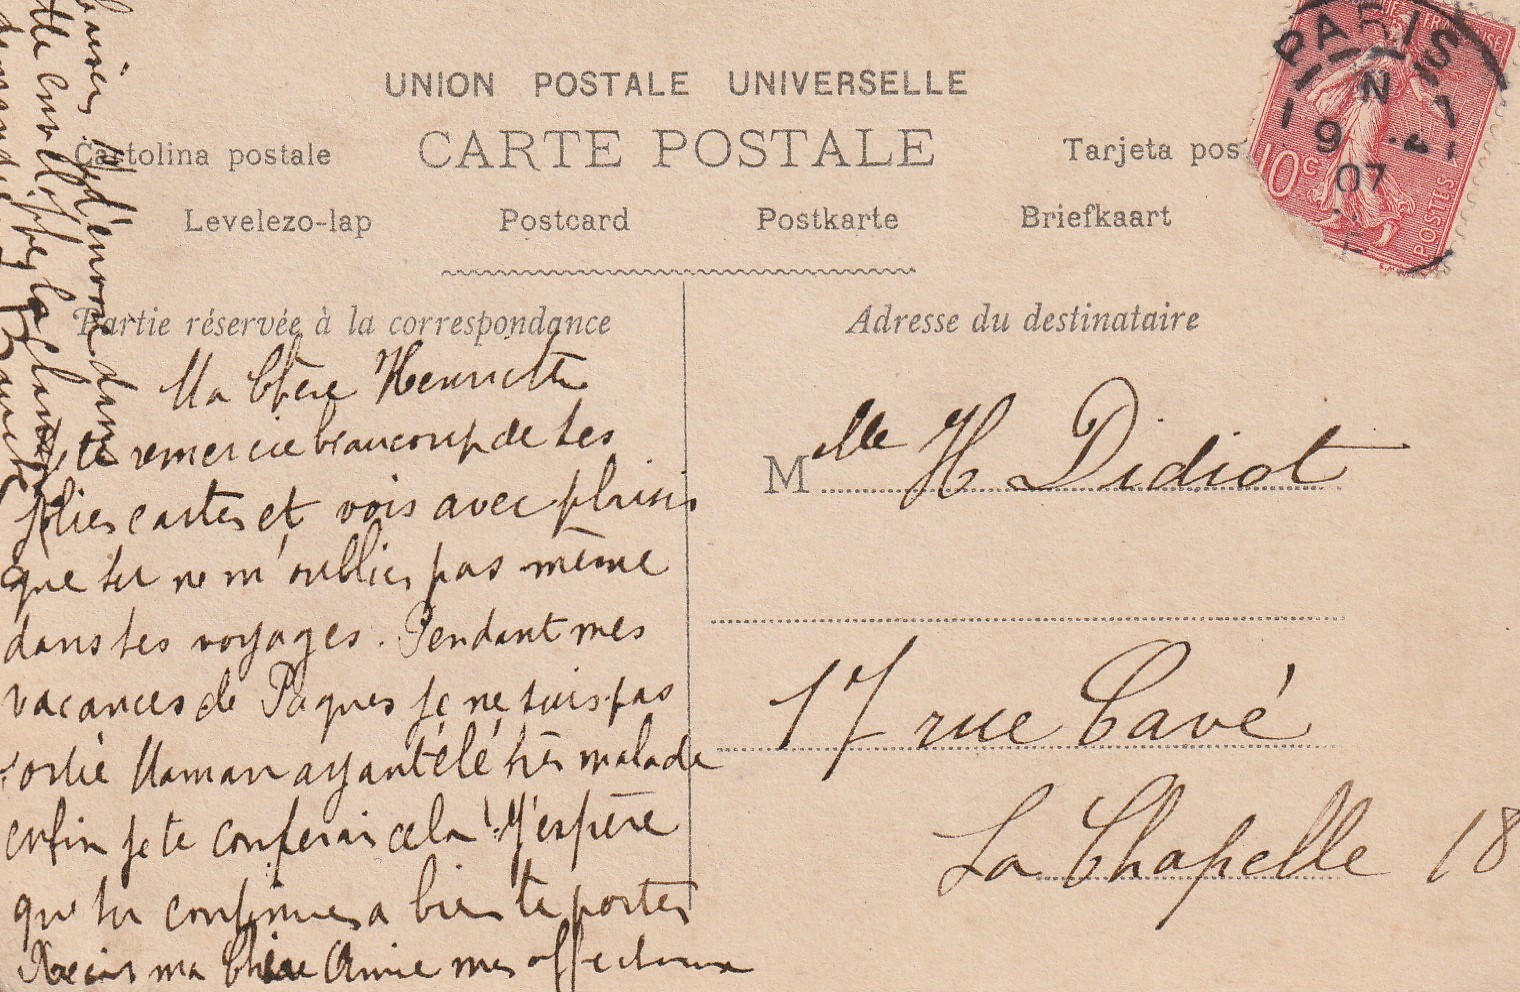 UNION POSTALE UNIVERSELLE
CARTE POSTALE
Cartolina postale
Tarjeta pos
Levelezo-lap
Postcard
Postkarte
Briefkaart
PARIS
9 -4
07
10c
POSTES
Partie réservée à la correspondance
Adresse du destinataire
Ma Chère Henriette
Je te remercie beaucoup de tes
jolies cartes et vois avec plaisir
que tu ne m'oublies pas même
dans tes voyages. Pendant mes
vacances de Paques je ne suis pas
sortie Maman ayant été très malade
enfin je te conterai cela! J'espère
que tu continues a bien te porter
Reçois ma Chère Amie mes affectueux
baisers J'envoie dans
cette enveloppe la
M elle H Didiot
17 rue Cavé
La Chapelle 18